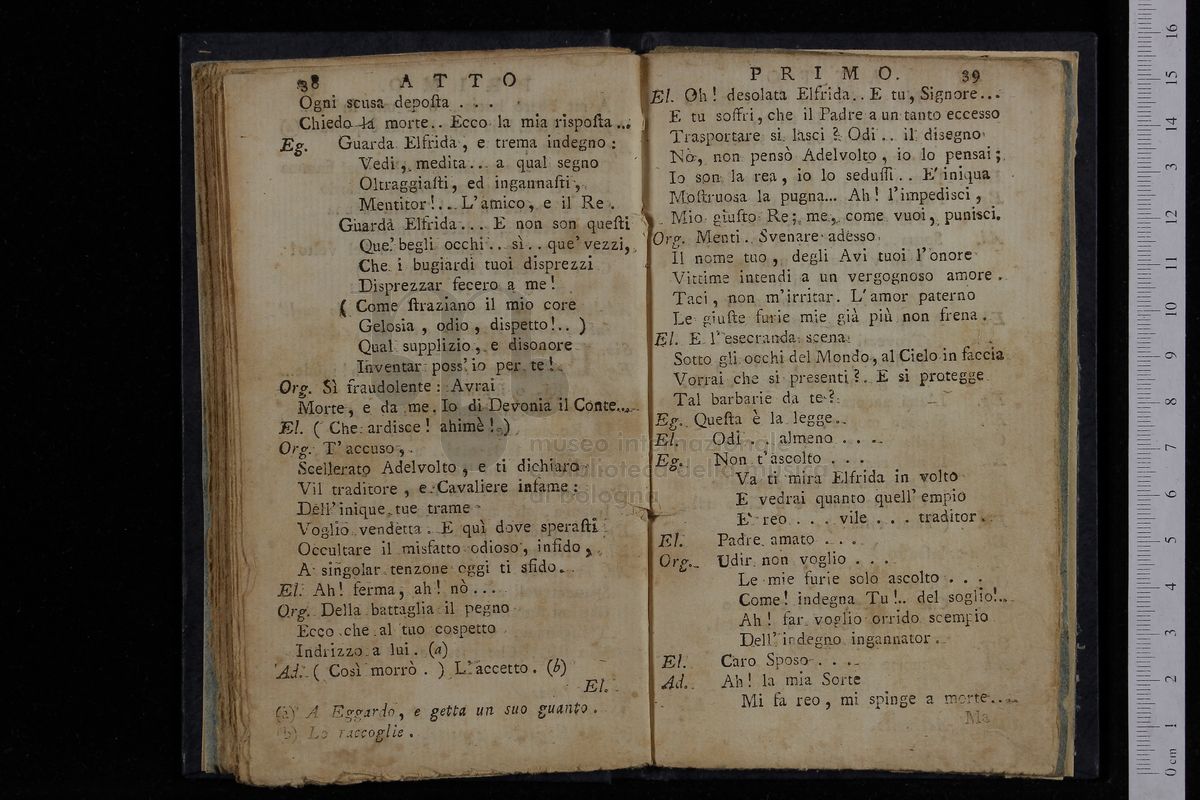 38 ATTO
Ogni scusa depoſta . . .
Chiedo la morte.. Ecco la mia risposta ...
Eg. Guarda Elfrida, e trema indegno :
Vedi, medita... a qual segno
Oltraggiaſti, ed ingannaſti,
Mentitor !... L'amico, e il Re .
Guarda Elfrida... E non son queſti
Que' begli occhi .. sì .. que' vezzi,
Che i bugiardi tuoi disprezzi
Disprezzar fecero a me !
( Come ſtraziano il mio core
Gelosia , odio , dispetto!.. )
Qual supplizio , e disonore
Inventar poss' io per te !
Org. Sì fraudolente : Avrai
Morte, e da me. Io di Devonia il Conte...
El. ( Che ardisce ! ahimè ! )
Org. T' accuso ,
Scellerato Adelvolto , e ti dichiaro
Vil traditore , e Cavaliere infame :
Dell' inique tue trame
Voglio vendetta . E quì dove speraſti
Occultare il misfatto odioso , infido ,
A singolar tenzone oggi ti sfido.
El. Ah! ferma, ah! nò ...
Org. Della battaglia il pegno
Ecco che al tuo cospetto
Indrizzo a lui. (a)
Ad. ( Così morrò . ) L'accetto. (b)
El.
(a) A Eggardo, e getta un suo guanto .
(b) Lo raccoglie .
PRIMO. 39
El. Oh! desolata Elfrida.. E tu, Signore...
E tu soffri, che il Padre a un tanto eccesso
Trasportare si lasci ? Odi .. il disegno
Nò, non pensò Adelvolto, io lo pensai ;
Io son la rea , io lo seduſſi .. E' iniqua
Moſtruosa la pugna... Ah! l'impedisci ,
Mio giuſto Re; me, come vuoi, punisci.
Org. Menti. Svenare adesso
Il nome tuo, degli Avi tuoi l'onore
Vittime intendi a un vergognoso amore .
Taci, non m'irritar. L'amor paterno
Le giuſte furie mie già più non frena .
El. E l'esecranda scena
Sotto gli occhi del Mondo, al Cielo in faccia
Vorrai che si presenti ?. E si protegge
Tal barbarie da te ?
Eg. Queſta è la legge..
El. Odi . . almeno . . .
Eg. Non t'ascolto . . .
Va ti mira Elfrida in volto
E vedrai quanto quell' empio
E' reo . . . vile . . . traditor .
El. Padre amato . . .
Org. Udir non voglio . . .
Le mie furie solo ascolto . . .
Come! indegna Tu!.. del soglio!..
Ah! far voglio orrido scempio
Dell' indegno ingannator .
El. Caro Sposo . . .
Ad. Ah! la mia Sorte
Mi fa reo , mi spinge a morte...
Ma
museo internazionale
e biblioteca della musica
di bologna
0 cm 1 2 3 4 5 6 7 8 9 10 11 12 13 14 15 16